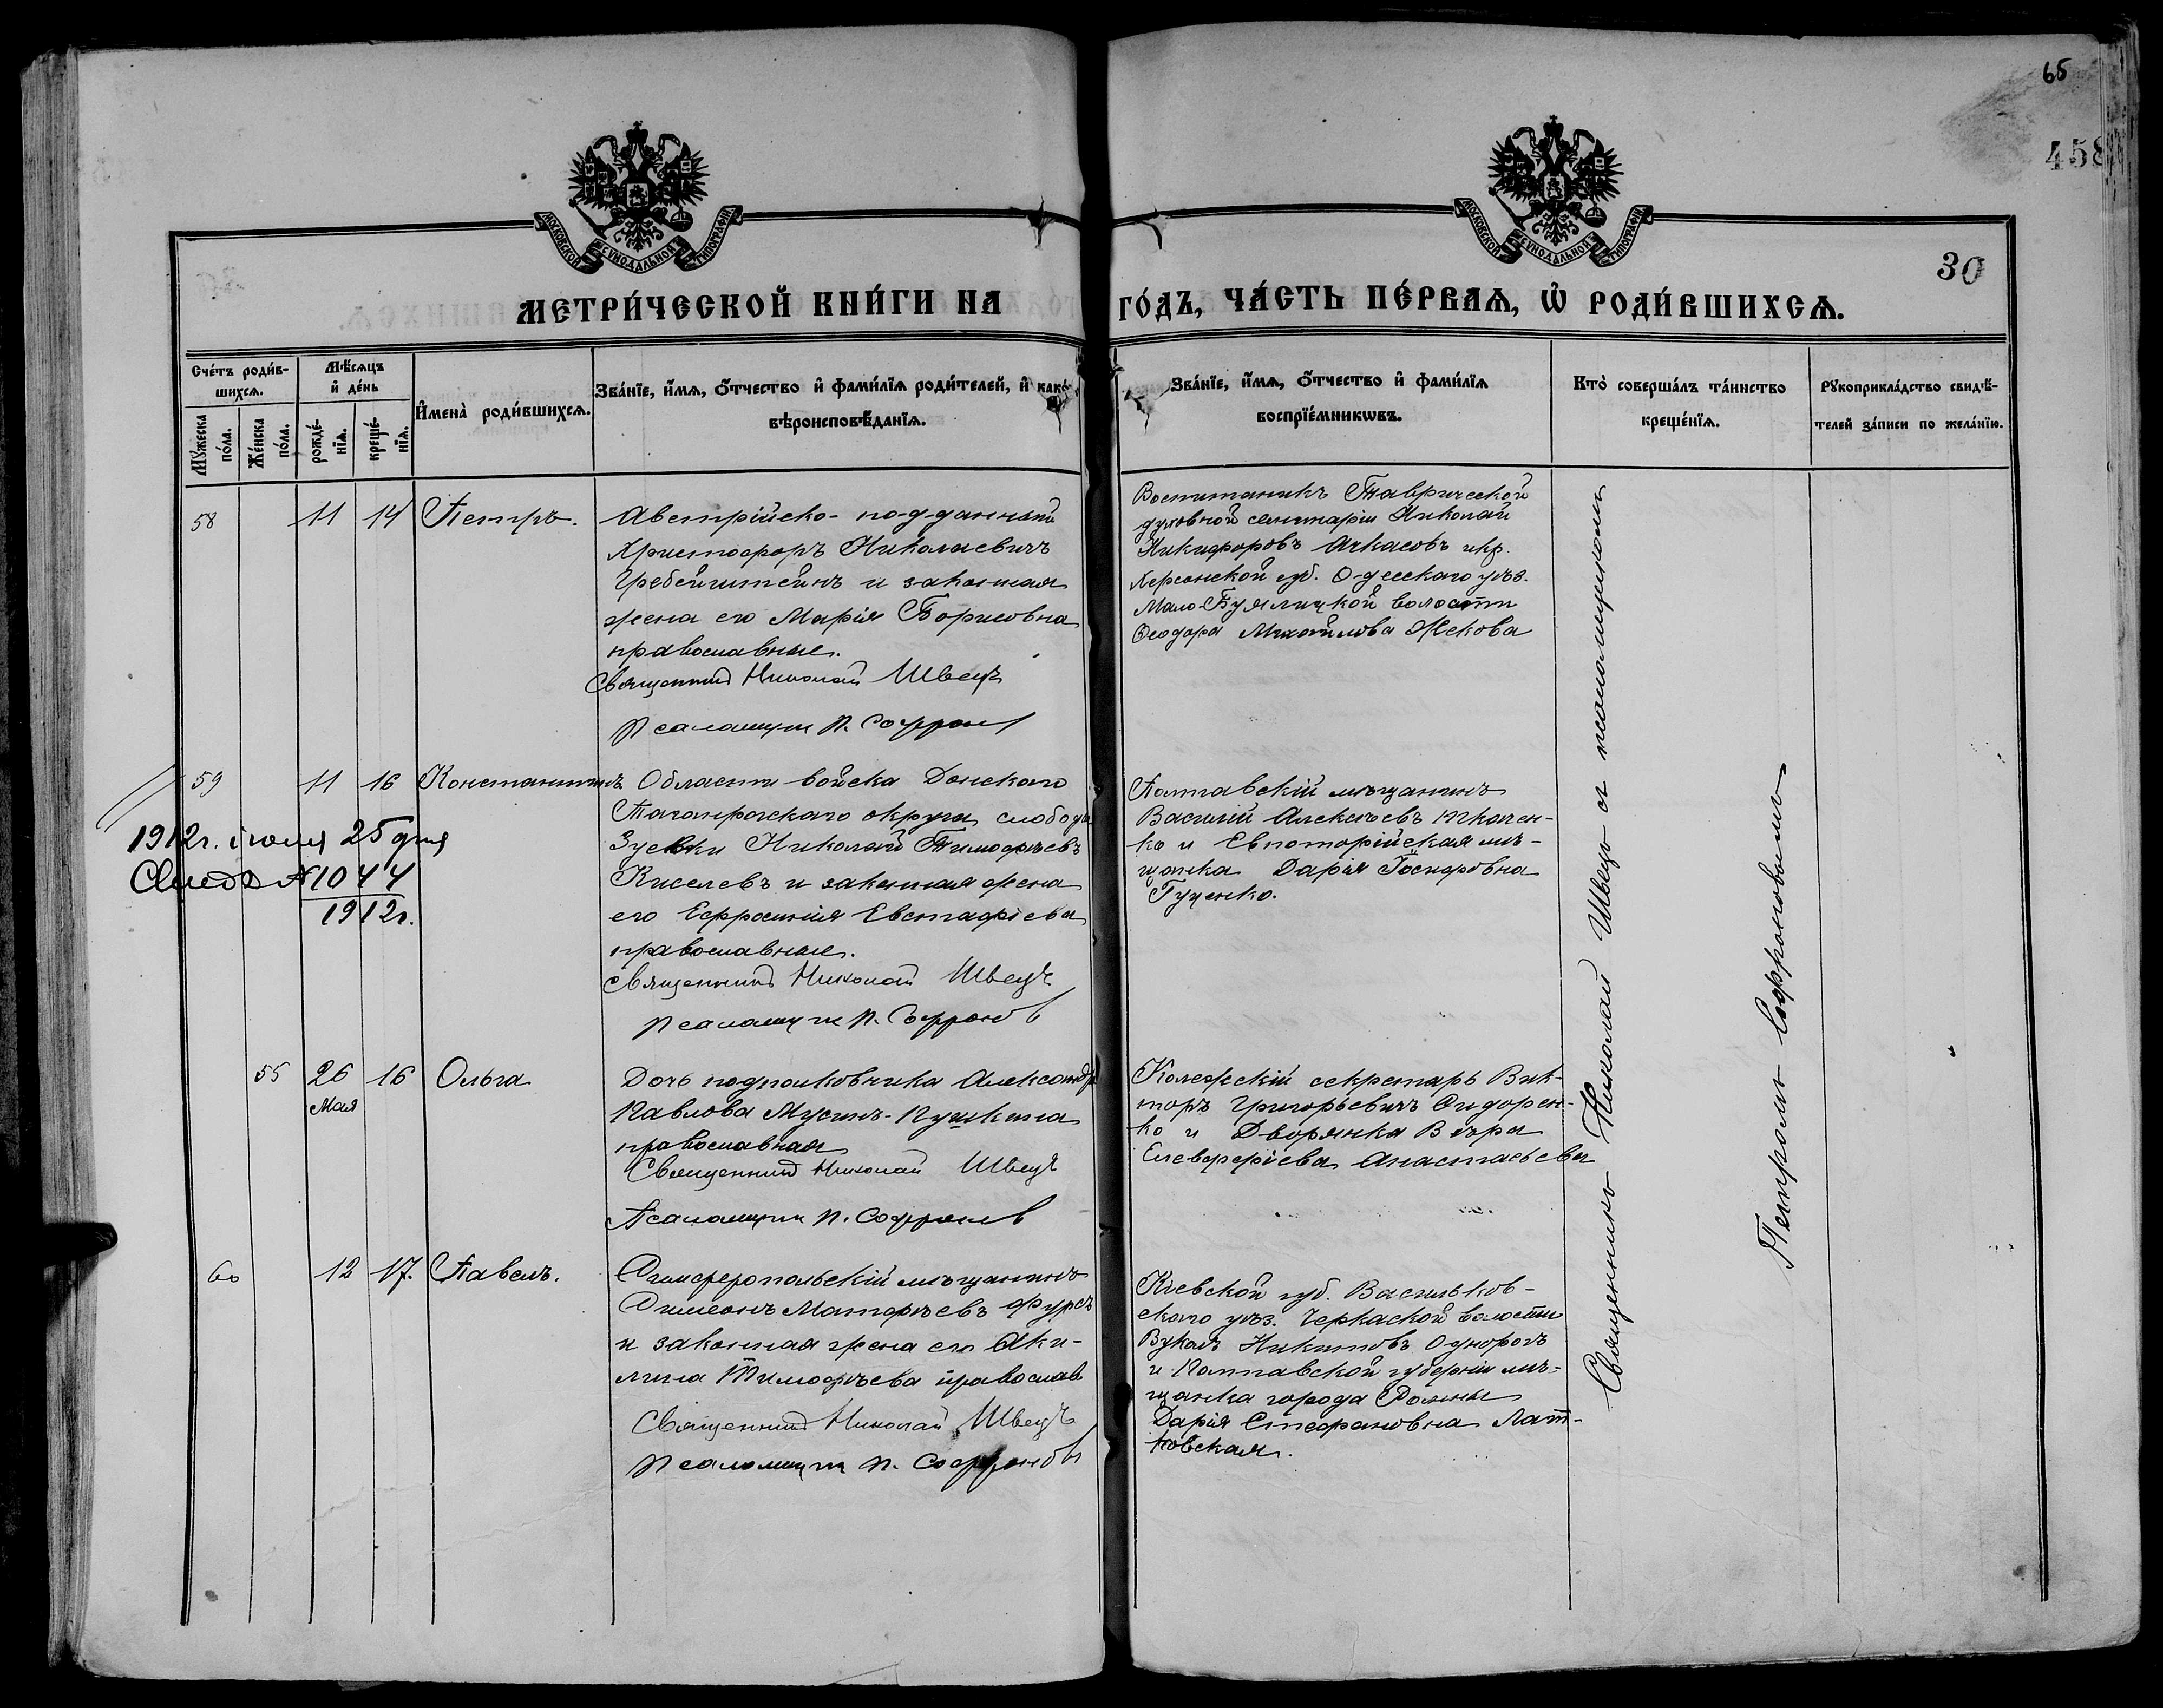 65
458
30
МОСКОВСКОЙ СѴНОДАЛЬНОЙ ТИПОГРАФІИ
МОСКОВСКОЙ СѴНОДАЛЬНОЙ ТИПОГРАФІИ
МЕТРИ́ЧЕСКОЙ КНИ́ГИ НА ГО́ДЪ, ЧА́СТЬ ПЕ́РВАѦ, Ѡ҆ РОДИ́ВШИХСѦ.
Сче́тъ роди́в-
шихсѧ.
Мꙋ́жеска по́ла.
Же́нска по́ла.
Мѣ́сѧцъ
и҆ де́нь
рожде́-
нїѧ.
креще́-
нїѧ.
И҆мена̀ роди́вшихсѧ.
Зва́нїе, и҆́мѧ, ѻ҆́тчество и҆ фами́лїѧ роди́телей, и҆ како́гѡ
вѣроисповѣ́данїѧ.
Зва́нїе, и҆́мѧ, ѻ҆́тчество и҆ фами́лїѧ
воспрїе́мникѡвъ.
Кто̀ соверша́лъ та́инство
креще́нїѧ.
Рꙋкоприкла́дство свидѣ́-
телей за́писи по жела́нїю.
58 11 14 Петръ.
Австрійско-подданный
Христофоръ Николаевичъ
Гребейштейнъ и законная
жена его Марія Борисовна
православные.
Священникъ Николай Швецъ
Псаломщик П. Софронов
Воспитаникъ Таврической
духовной семинаріи Николай
Никифоровъ Ачкасовъ и кр.
Херсонской губ. Одесскаго уѣз.
Мало-Буялицкой волости
Ѳеодора Михайлова Жекова
59 11 16 Константинъ
Области войска Донского
Таганрогскаго округа слободы
Зуевки Николай Тимофѣевъ
Киселевъ и законная жена
его Ефросинія Евстафіева
православные.
Священникъ Николай Швецъ
Псаломщик П. Софронов
Полтавскій мѣщанинъ
Василій Алексѣевъ Ткачен-
ко и Евпоторійская мѣ-
щанка Дарія Іосифовна
Гуценко.
1912г. іюля 25 дня
№ 1044
1912г.
55 26 Мая 16 Ольга
Дочь подполковника Александр
Павлова Мусинъ-Пушкина
православная
Священникъ Николай Швецъ
Псаломщик П. Софронов
Колежскій секретарь Вик-
торъ Григорьевичъ Сидорен-
ко и Дворянка Вѣра
Елевферіева Анастасьева
60 12 17. Павелъ.
Симферопольскій мѣщанинъ
Симеонъ Матфѣевъ Фурсъ
и законная жена его Аки-
лина Тимофѣева православ
Священникъ Николай Швецъ
Псаломщик П. Софронов
Кіевской губ. Васильков-
скаго уѣз. Черкаской волости
Вуколъ Никитовъ Однорогъ
и Полтавской губерніи мѣ-
щанка города Ромны
Дарія Стефановна Лат-
ковская.
Священникъ Николай Швецъ съ псаломщикомъ
Петромъ Софроновымъ